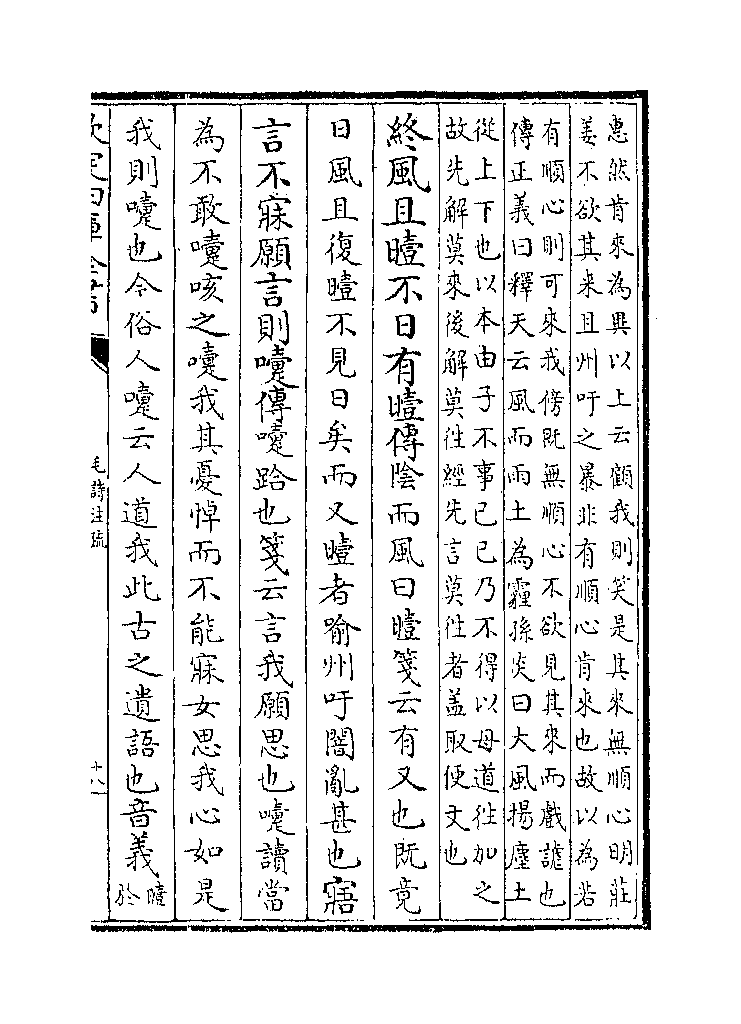 惠然肯來為異以上云顧我則笑是其來無順心明莊
姜不欲其来且州吁之暴非有順心肯來也故以為若
有順心則可來我傍既無順心不欲見其來而戲謔也
傳正義曰釋天云風而雨土為霾孫炎曰大風揚塵土
從上下也以本由子不事己己乃不得以母道徃加之
故先解莫來後解莫徃經先言莫徃者盖取便文也
終風且曀不日有曀傳陰而風曰曀箋云有又也既竟
日風且復曀不見日矣而又曀者喻州吁闇亂甚也寤
言不寐願言則嚏傳嚏跲也箋云言我願思也嚏讀當
為不敢嚏咳之嚏我其憂悼而不能寐女思我心如是
我則嚏也今俗人嚏云人道我此古之遺語也音義曀
於
毛詩注疏
十八